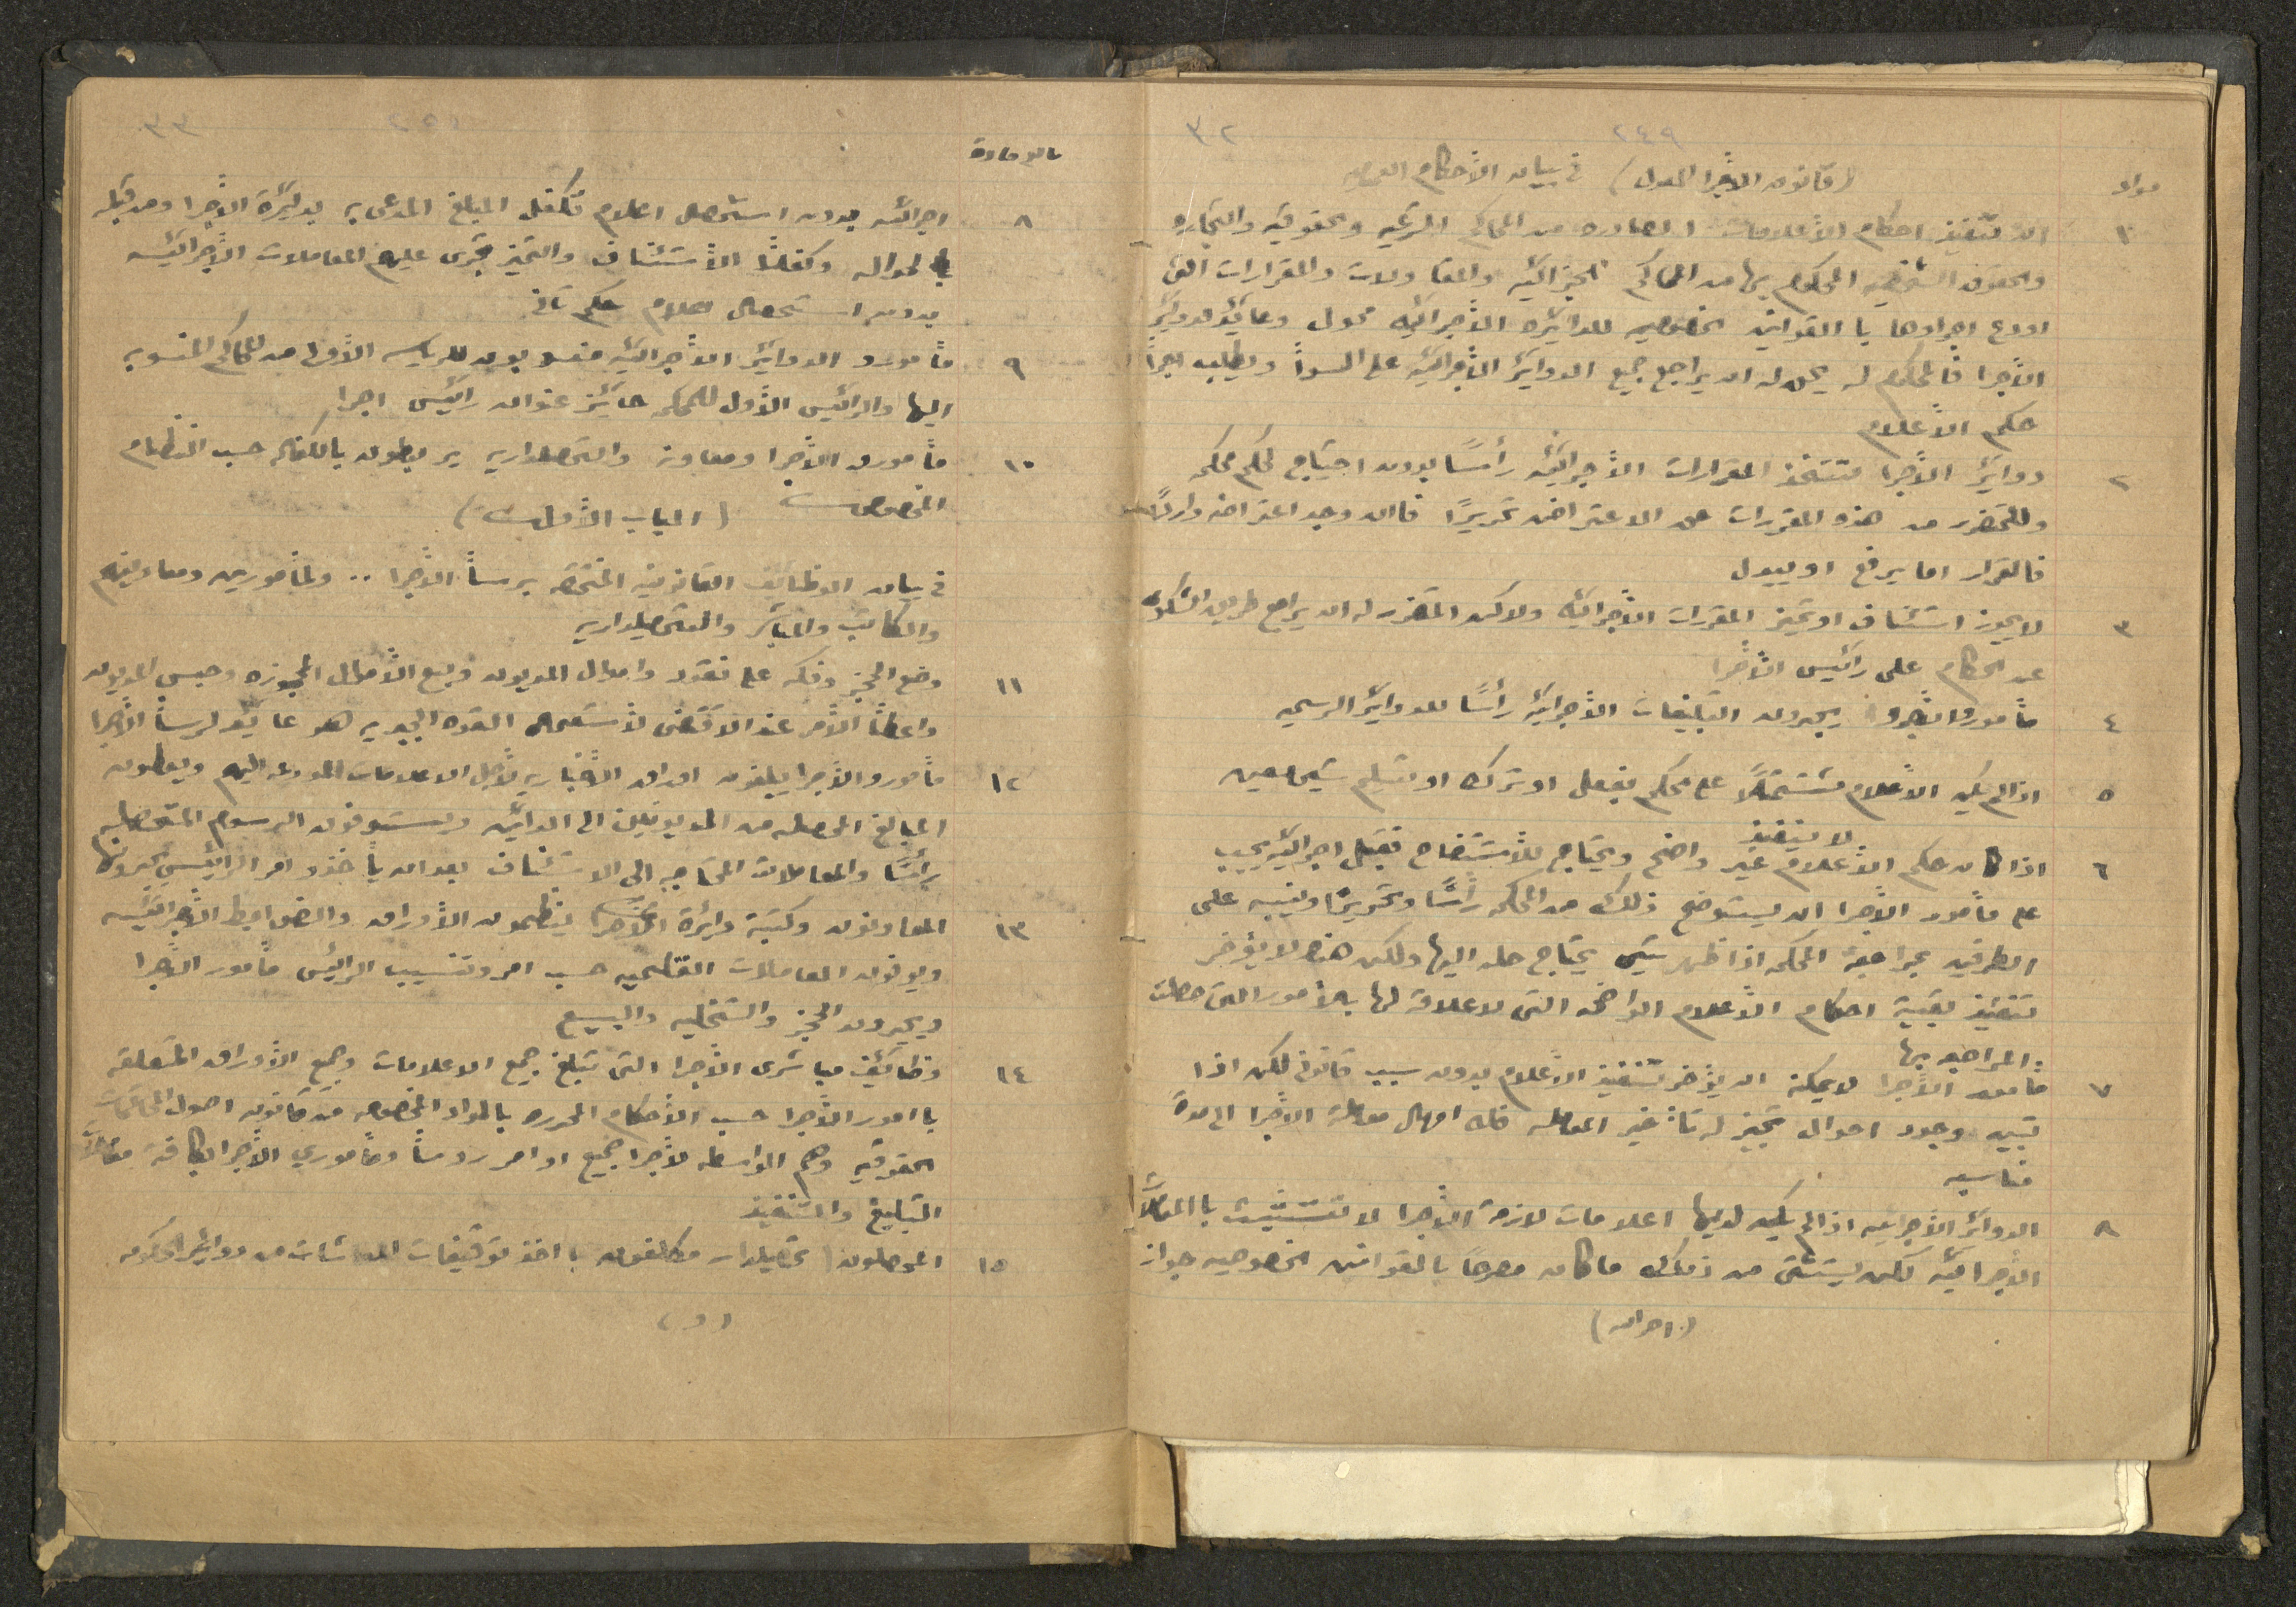 ٣٢
٢٤٩
مواد
(قانون الاجرا المعدل) في بيان الأحكام العموميه
١ ان تنفيذ احكام الأعلامات الصادره من المحاكم الشرعيه والحقوقيه والتجاريه
والحقوق الشخصيه المحكوم بها من المحاكم الجزائيه والمقاولات والمقرارات التي
اودع اجراوها با القوانين الخصوصيه للدائره الأجرائيه محول وعائد لدوائر
الأجرا فالمحكوم له يحق له ان يراجع جميع الدوائر الأجرائيه على السوأ ويطلب اجرأ
حكم الأعلام
٢ دوائر الأجرا تتخذ المقرارات الأجرائيه رأسًا بدون احتياج لحكم محكمه
وللمتضرر من هذه المقررات حق الاعتراض تحريرًا فاان وجد اعتراضه واردًا
فالقرار اما يرفع او يبدل
٣ لا يجوز استئناف او تميز المقررات الأجرائيه ولاكن المتضرر له ان يراجع طريق اشتكاء
عن الحكام على رائيس الأجرا
٤ مأمورو الأجرا يجرون التبليغات الأجرائيه رأسًا للدوائر الرسميه
٥ اذا لم يكن الأعلام مشتملًا على حكم بفعل او ترك او تسليم شيئ معين
لا ينفذ
٦ اذا كان حكم الأعلام غير واضح ويحتاج للأستيضاح فقبل اجرائيه يجب
على مأمور الأجرا ان يستوضح ذلك من المحكمه رأسًا وتحريرًا وينبه على
الطرفين بمراجعة المحكمه اذا ظهر شيئ يحتاج حله اليها ولكن هذه لا يؤخر
تنفيذ بقية احكام الأعلام الواضحه التي لا علاقة لها بالأمور التي حصلت
المراجعه بها
٧ مأمور الأجرا لا يمكنه ان يؤخر تنفيذ الأعلام بدون سبب قانوني لكن اذا
تبين وجود احوال تجيز له تأخير المعامله فله امهال معاملة الأجرا الى مدة
مناسبه
٨ الدوائر الأجرائيه اذا لم يكن لديها اعلامات لازمة الأجرا لا تتشبث با المعاملات
الأجرائيه لكن يستثنى من ذلك ما كان مصرحًا با القوانين الخصوصيه جواز
(اجرائه)
٣٣
مادة
٨ اجرائه بدون استحصال اعلام تكفل المبلغ المدعى به بدائرة الأجرا ومن قبله
با لحواله وكفلأ الأستئناف والتميز يجرى عليهم المعاملات الأجرائيه
بدون استحصال اعلام حكم ثاني
٩ مأمورو الدوائر الأجرائيه منسوبون للرياسه الأولى من المحاكم المنسوبه
اليها والرائيس الأول للمحكمه حائز عنوان رائيس اجرا
١٠ مأمورو الأجرا ومعاونه والتحصلداريه يربطون بالكفاله حسب النظام
المخصوص
(الباب الأول)
في بيان الوظائف القانونيه المختصه برسأ الأجرا .. والمأمورين ومعاونيهم
والكاتب والمباشر والتحصيلداريه
١١ وضع الحجز وفكه على نقود واموال المديون وبيع الأموال المحجوزه وحبس المديون
واعطأ الأمر عند الاقتضى لأستعمال القوه الجبريه هو عائد لرسأ الأجرا
١٢ مأمورو الأجرا يبلغون اوراق الأخباريه لأجل الاعلامات المودعه اليهم ويعطون
المبالغ المحصله من المديونين الى الدائن ويستوفون الرسوم المتحصله
رأسًا والمعاملات المحتاجه الى الاستئناف بعد ان يأخذو امر الرائيس يجرونها
١٣ المعاونون وكتبة دائرة الأجرا ينظمون الأوراق والضوابط الأجرائيه
ويوفون المعاملات القلميه حسب امر وتنسيب الرائيس مأمور الأجرا
ويجرون الحجز والتخليه والبيع
١٤ وظائف مباشرى الأجرا التي تبلغ جميع الاعلامات وجميع الأوراق المتعلقه
باامور الأجرا حسب الأحكام المحرره بالمواد المخصوصه من قانون اصول المحاكمات
الحقوقيه وهم الواسطه لأجرا جميع اوامر روسأ ومأموري الأجرا لكافة معاملات
التبليغ والتنفيذ
١٥ المحصلون (تحصيلدار) مكلفون بااخذ توقيفات المعاشات من دوائر الحكومه
(و)